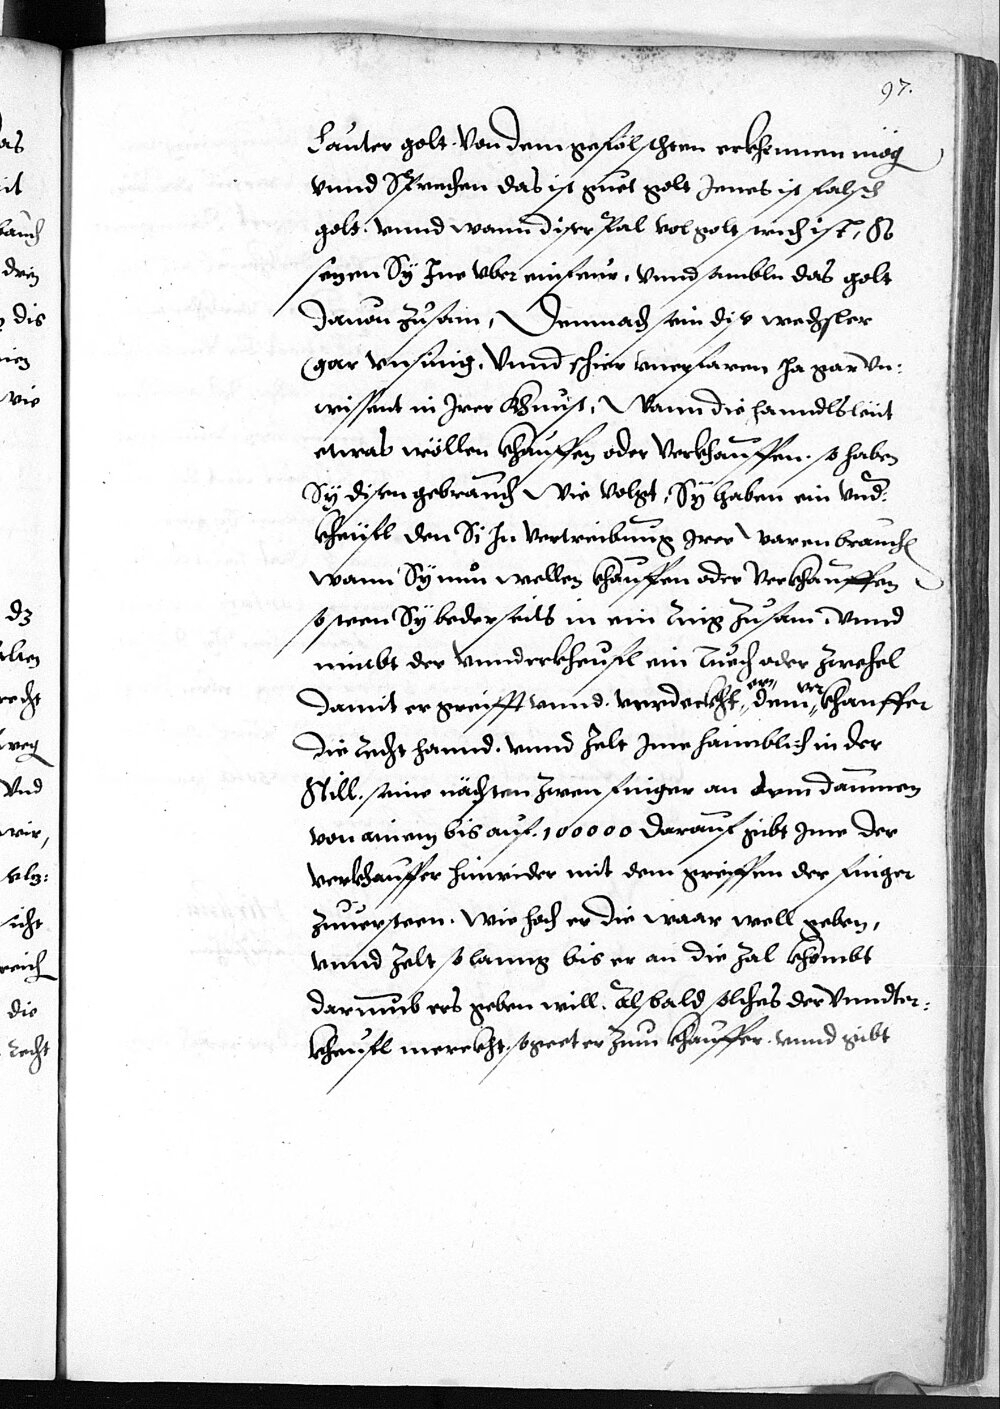 97.
Lauter golt von dem gefölschten erkhennen mög
vnnd Sprechen das ist guet golt Jenes ist falsch
golt. vnnd wann diser Pal vol golt strich ist, So
sezen Sy Jne vber ein feur, vnnd sambln das golt
dauon zusam, Demnach sein dise wechsler
gar vnsinig, Vnnd schier vnerfaren Ja gar vn:
wissent in Jrer Khunst, Wann die hanndlsleüt
etwas wöllen khauffen oder Verkhauffen. so haben
Sy disen gebrauch Wie volgt, Sy haben ein vnd:
kheüfl den Si Jn vertreibung Jrer Waren brauch[e]
wann Sy nun wellen khauffen oder Verkhauffen
so steen Sy bederseits in ein Ring zusam, vnnd
nimbt der vnnderkheufl ein Tuech oder zwehel
damit er greifft vnnd verdeckht, er, dem ver khauffer
die Recht hannd. vnnd zelt Jme haimblich in der
Still. seine nächsten zwen finger an dem daumen
von ainem bis auf. 100000 darauf gibt Jme der
verkhauffer hinwider mit dem greiffen der finger
zuuersteen. Wie hoch er die waar well geben,
vnnd zelt so lanng bis er an die zal khombt
darumb ers geben will. Alsbald solches der Vnndter:
kheufl merckht, so geet er zum khauffer. vnnd gibt